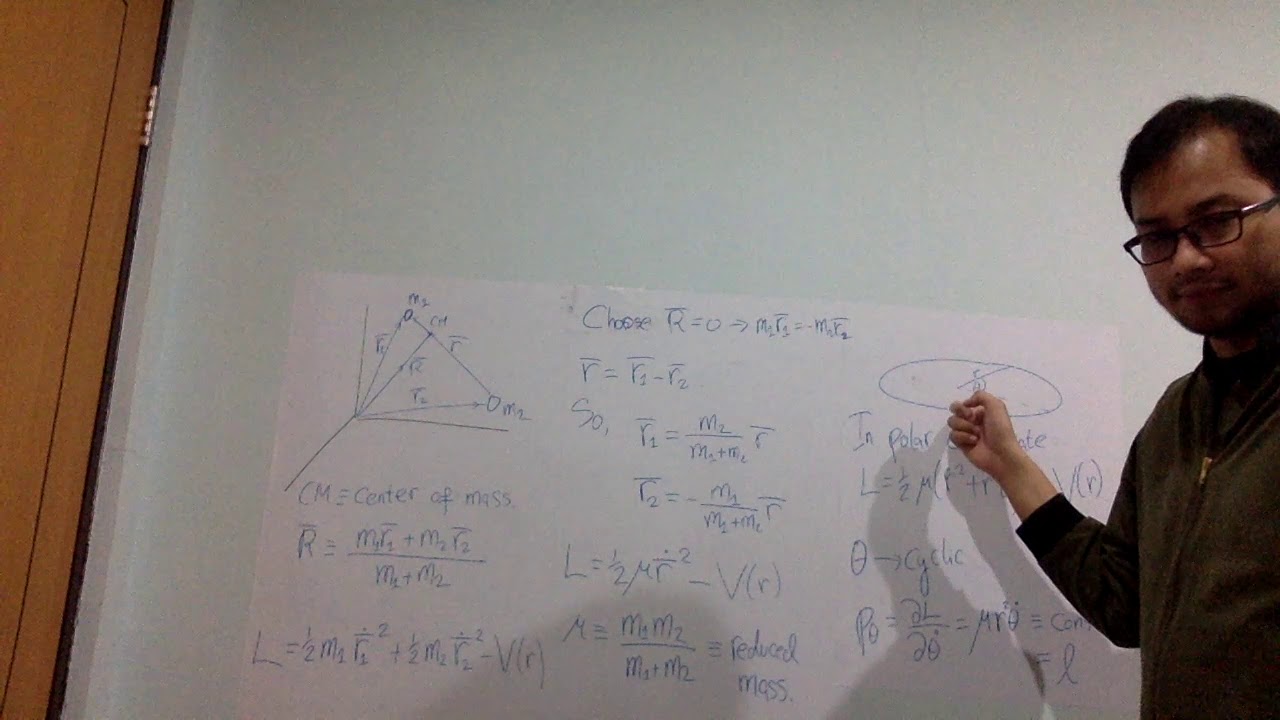 m₂
CM
r̄₁
R̄
r̄
r̄₂
m₂
CM ≡ Center of mass.
R̄ ≡ (m₁r̄₁ + m₂r̄₂)/(m₁+m₂)
L = ½ m₁ ṙ̄₁² + ½ m₂ ṙ̄₂² − V(r)
Choose R̄ = 0 → m₁r̄₁ = −m₂r̄₂
r̄ = r̄₁ − r̄₂
So, r̄₁ = m₂/(m₁+m₂) r̄
r̄₂ = − m₁/(m₁+m₂) r̄
L = ½ μ ṙ̄² − V(r)
μ ≡ m₁m₂/(m₁+m₂) ≡ reduced
mass.
r
θ
In polar
L = ½ μ(ṙ² + r V(r)
θ → cyclic
pθ = ∂L/∂θ̇ = μr²θ̇ ≡
= l